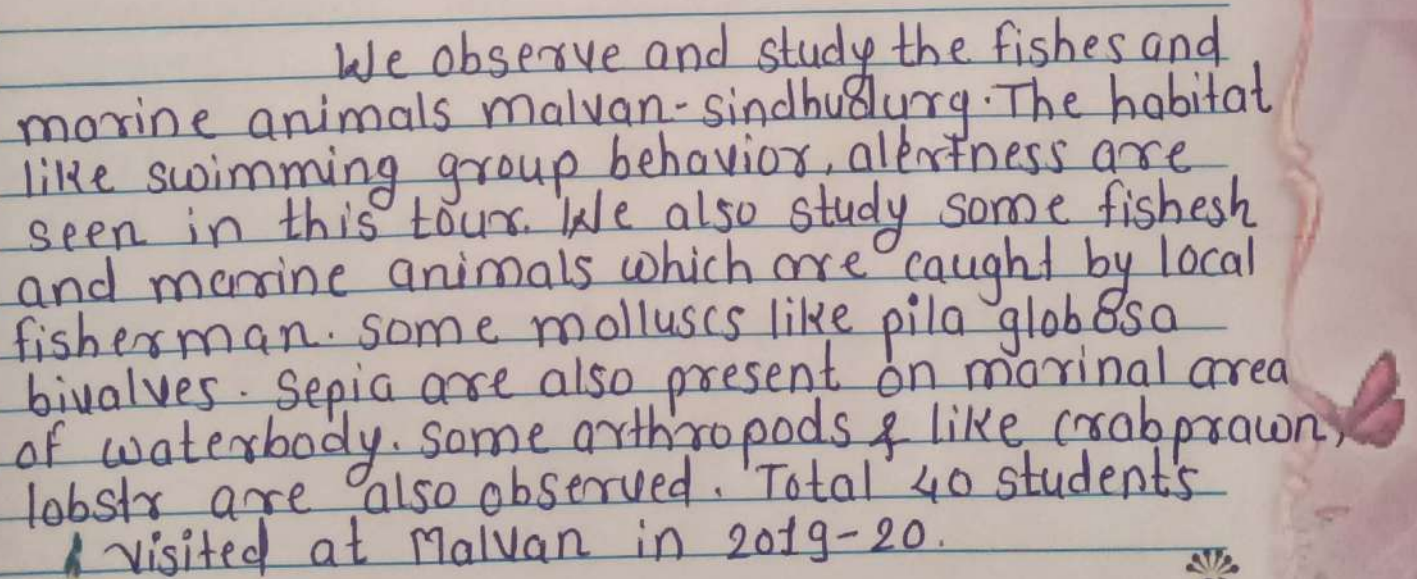 We observe and study the fishes and
marine animals malvan-sindhudurg. The habitat
like swimming group behavior, alertness are
seen in this tour. We also study some fishesh
and marine animals which are caught by local
fisherman. some molluscs like pila globosa
bivalves. Sepia are also present on marinal area
of waterbody. some arthropods & like crab prawn,
lobstr are also observed. Total 40 students
visited at Malvan in 2019-20.